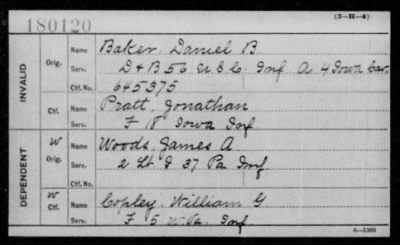 180120
(3—31—4)
INVALID
Orig.
Name Baker, Daniel B
Serv. D & B 56 U.S.C. Inf A 4 Iowa Cav.
Ctf. No. 645375
Ctf.
Name Pratt, Jonathan
Serv. F 18 Iowa Inf
DEPENDENT
W Orig.
Name Woods, James A
Serv. 2 Lt. I 37 Pa Inf
Ctf. No.
W Ctf.
Name Copley, William G.
Serv. F 5 W.Va. Inf